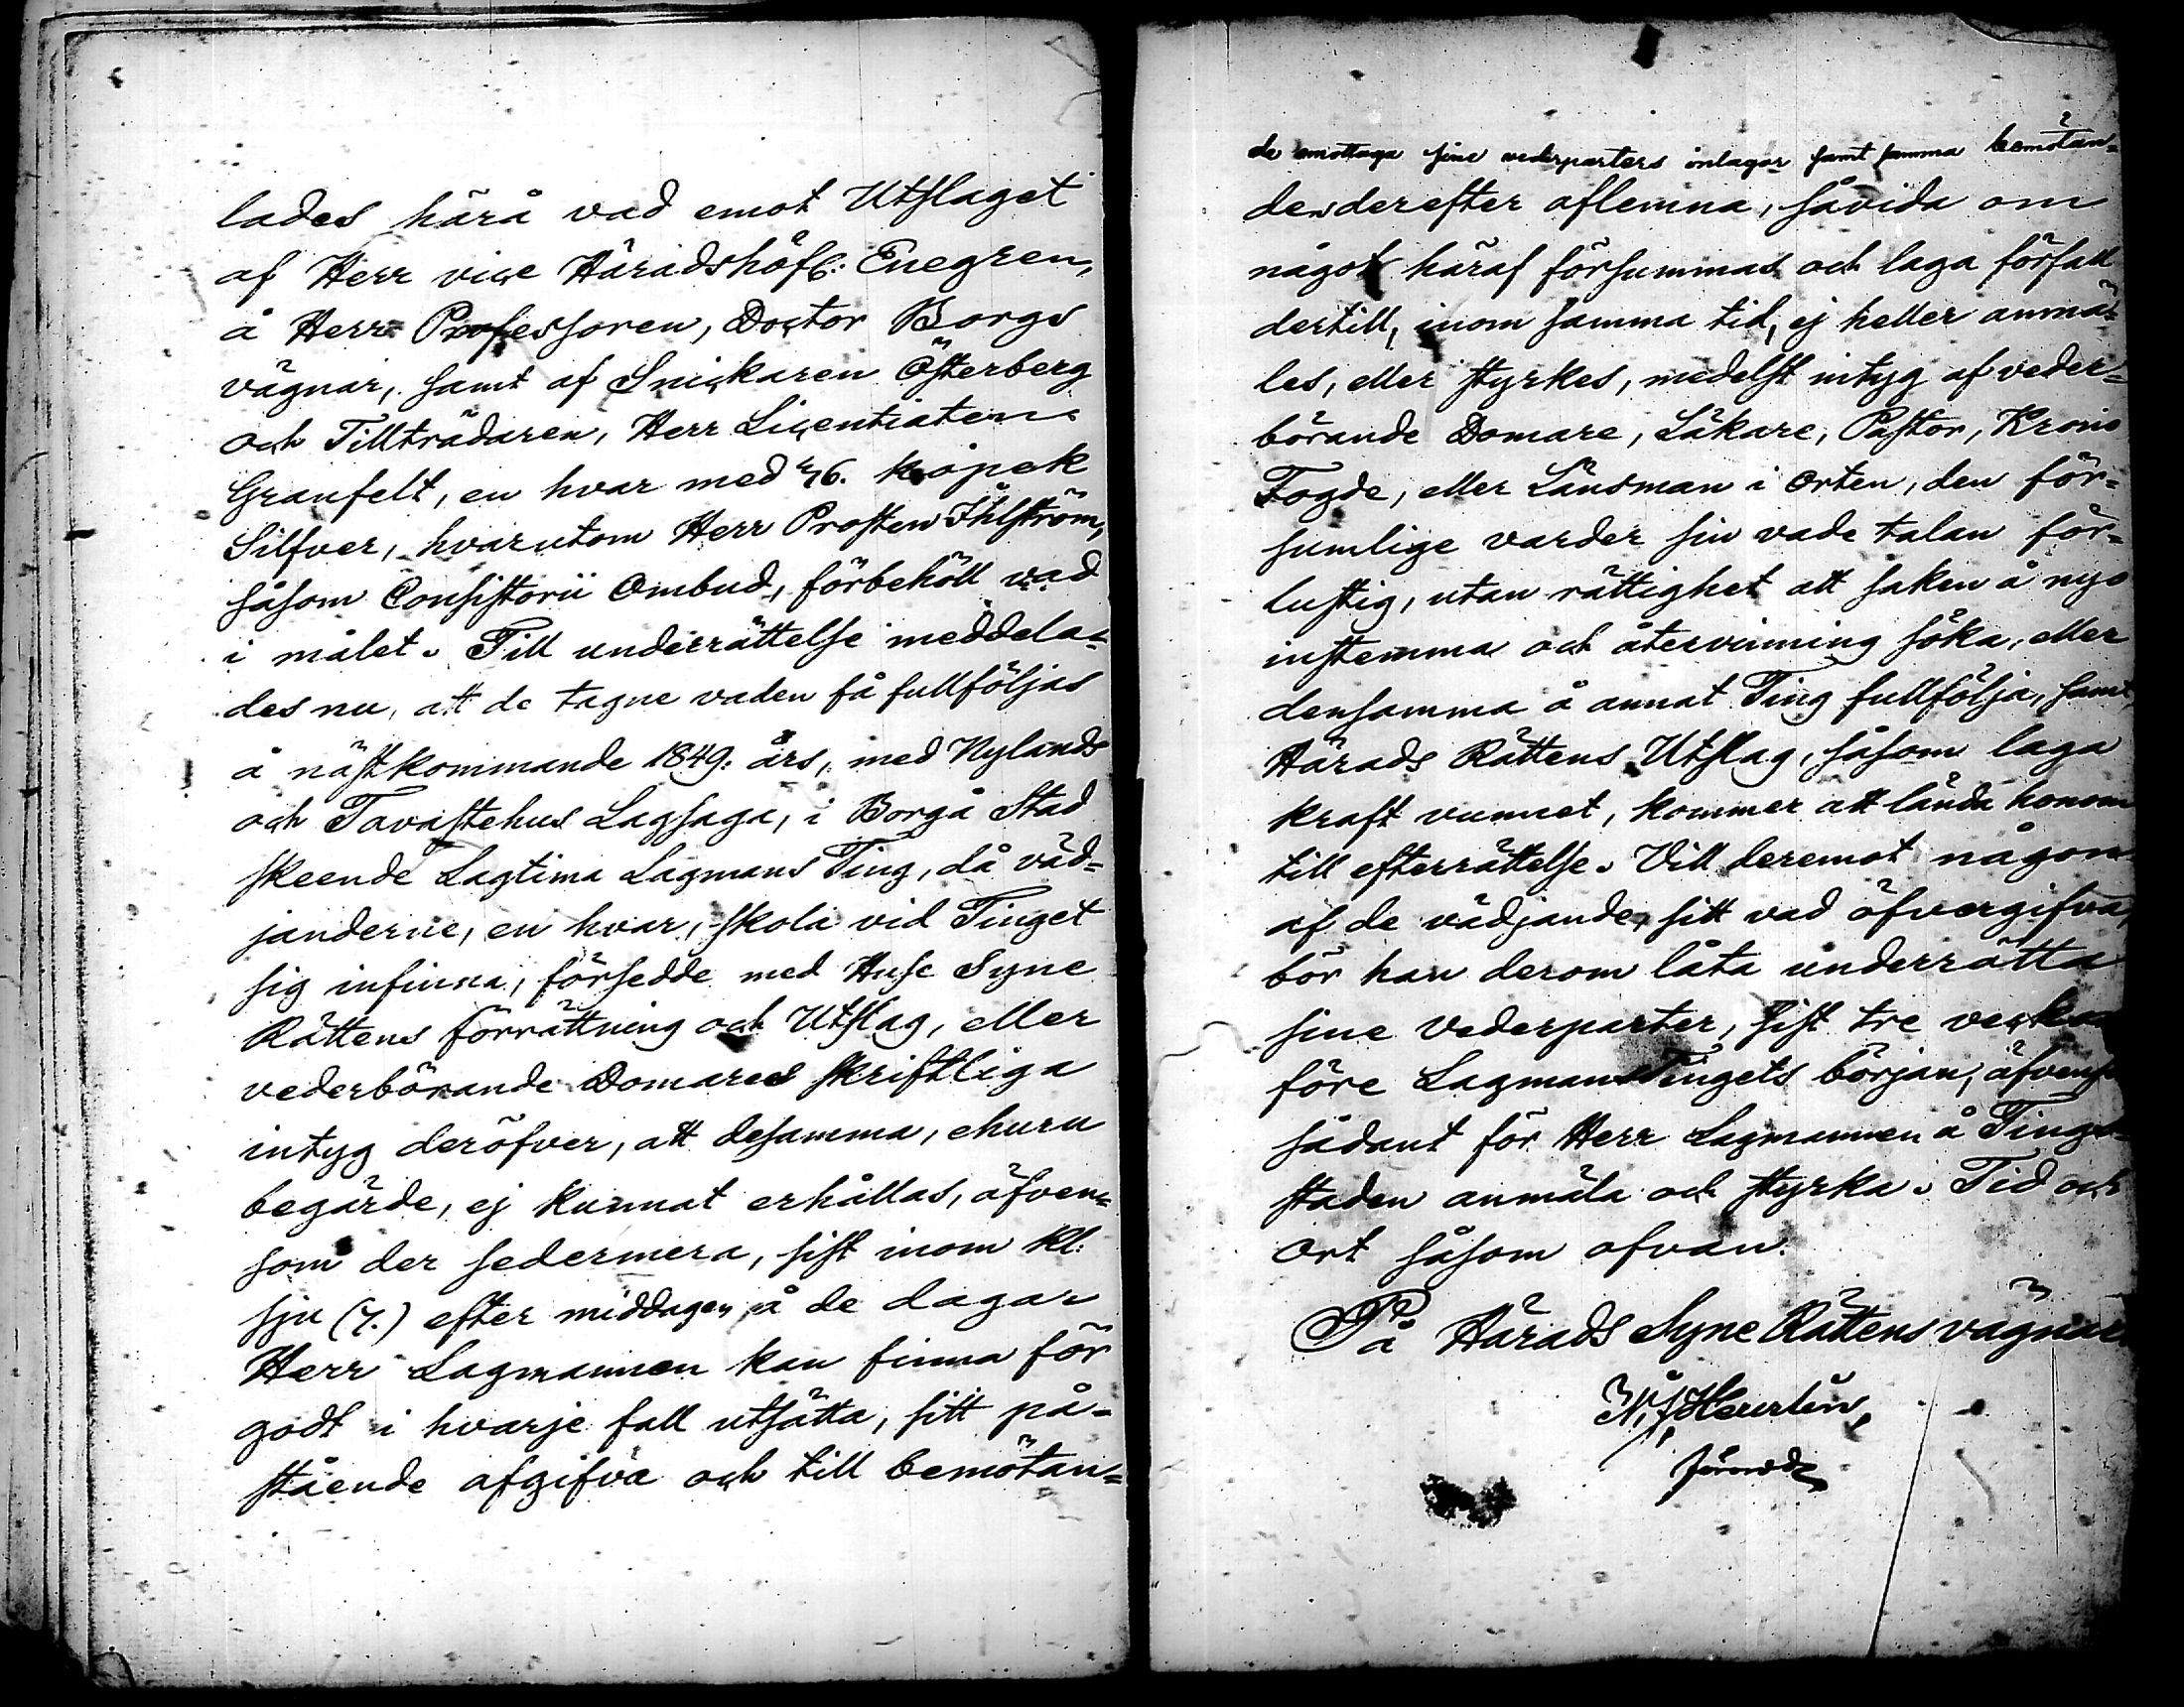 lades härå vad emot Utslaget
af Herr vice Häradshöfd: Enegren,
å Herr Professoren, Doctor Borgs
vägnar, samt af Snickaren Österberg
och Tillträdaren, Herr Licentiaten
Granfelt, en hvar med 46. kopek
Silfver, hvarutom Herr Prosten Ihlström,
såsom Consistorii Ombud, förbehöll vad
i målet. Till underrättelse meddela=
des nu, att de tagne vaden få fullföljas
å nästkommande 1849. års, med Nylands
och Tavastehus Lagsaga, i Borgå Stad
skeende Lagtima Lagmans Ting, då väd=
janderne, en hvar, skola vid Tinget
sig infinna, försedde med Huse Syne
Rättens förrättning och Utslag, eller
vederbörande Domares skriftliga
intyg deröfver, att desamma, ehuru
begärde, ej kunnat erhållas, äfven=
som der sedermera, sist inom kl:
sju (7.) efter middagen å de dagar
Herr Lagmannen kan finna för
godt i hvarje fall utsätta, sitt på=
stående afgifva och till bemötan=
de emottaga sine vederparters inlagor samt samma bemötan=
den derefter aflemna, såvida om
något häraf försummas och laga förfall
dertill, inom samma tid, ej heller anmä=
les, eller styrkes, medelst intyg af veder=
börande Domare, Läkare, Pastor, Krono
Fogde, eller Länsman i orten, den för=
sumlige varder sin vade talan för=
lustig, utan rättighet att saken å nyo
instemma och återvinning söka, eller
densamma å annat Ting fullfölja, samt
Härads Rättens Utslag, såsom laga
kraft vunnet, kommer att lända honom
till efterrättelse. Vill deremot någon
af de vädjande, sitt vad öfvergifva,
bör han derom låta underrätta
sine vederparter, sist tre veckor
före Lagmans Tingets början, äfvenso
sådant för Herr Lagmannen å Tings=
staden anmäla och styrka. Tid och
ort såsom ofvan.
På Härads Syne Rättens vägnar